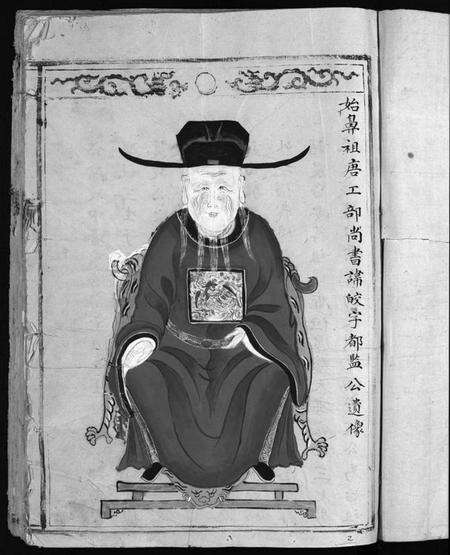 始鼻祖唐工部尚書諱皎字都監公遺像
2